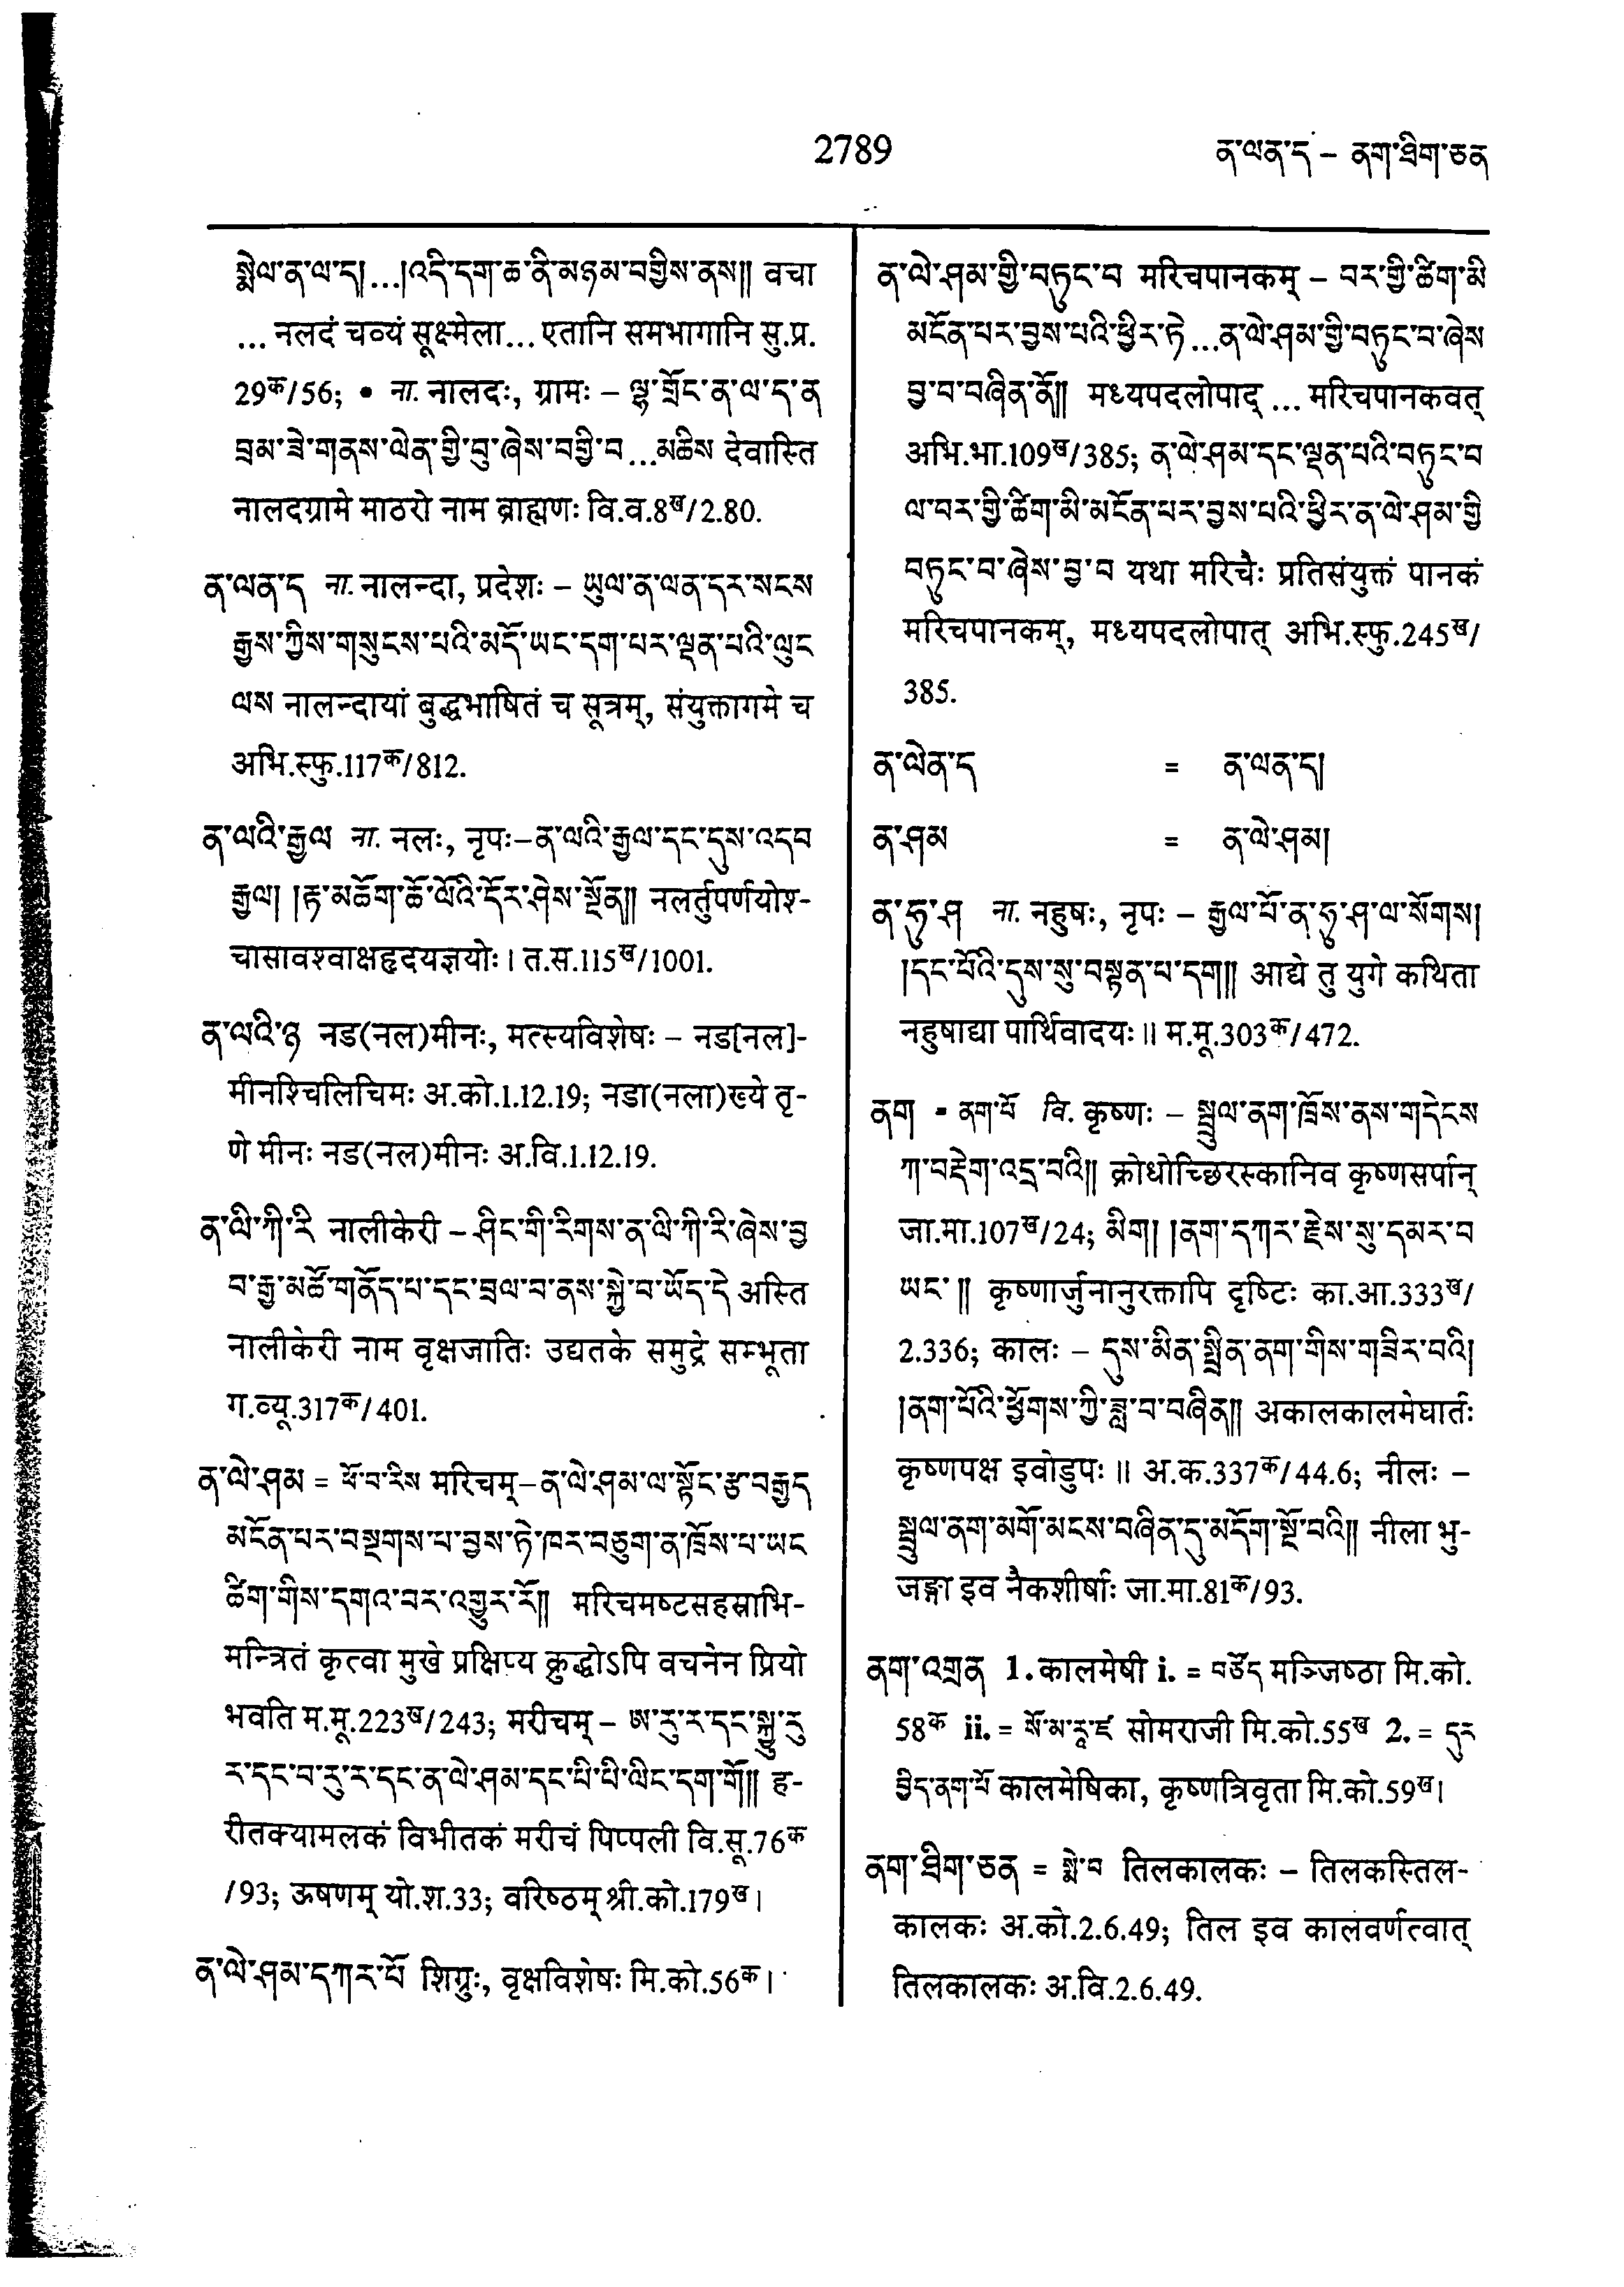 2789
ན་ལན་ད – ནག་ཐིག་ཅན
སྨེལ་ན་ལ་ད། ...།འདི་དག་ཆ་ནི་མཉམ་བགྱིས་ནས།། वचा
... नलदं चव्यं सूक्ष्मेला... एतानि समभागानि सु.प्र.
29क/56; • ना. नालदः, ग्रामः – ལྷ་གྲོང་ན་ལ་ད་ན
བྲམ་ཟེ་གནས་ལེན་གྱི་བུ་ཞེས་བགྱི་བ...མཆིས देवास्ति
नालदग्रामे माठरो नाम ब्राह्मणः वि.व.8ख/2.80.
ན་ལན་ད ना. नालन्दा, प्रदेशः – ཡུལ་ན་ལན་དར་སངས
རྒྱས་ཀྱིས་གསུངས་པའི་མདོ་ཡང་དག་པར་ལྡན་པའི་ལུང
ལས नालन्दायां बुद्धभाषितं च सूत्रम्, संयुक्तागमे च
अभि.स्फु.117क/812.
ན་ལའི་རྒྱལ ना. नलः, नृपः–ན་ལའི་རྒྱལ་དང་དུས་འདབ
རྒྱལ། །རྟ་མཆོག་ཆོ་ལོའི་དོར་ཤེས་སྔོན།། नलर्तुपर्णयोश्-
चासावश्वाक्षहृदयज्ञयोः। त.स.115ख/1001.
ན་ལའི་ཉ नड(नल)मीनः, मत्स्यविशेषः – नड[नल]-
मीनश्चिलिचिमः अ.को.1.12.19; नडा(नला)ख्ये तृ-
णे मीनः नड(नल)मीनः अ.वि.1.12.19.
ན་ལི་ཀི་རི नालीकेरी – ཤིང་གི་རིགས་ན་ལི་ཀི་རི་ཞེས་བྱ
བ་རྒྱ་མཚོ་གནོད་པ་དང་བྲལ་བ་ནས་སྐྱེ་བ་ཡོད་དེ अस्ति
नालीकेरी नाम वृक्षजातिः उद्यतके समुद्रे सम्भूता
ग.व्यू.317क/401.
ན་ལེ་ཤམ = ཕོ་བ་རིས मरिचम्–ན་ལེ་ཤམ་ལ་སྟོང་རྩ་བརྒྱད
མངོན་པར་བསྔགས་པ་བྱས་ཏེ་ཁར་བཅུག་ན་ཁྲོས་པ་ཡང
ཚིག་གིས་དགའ་བར་འགྱུར་རོ།། मरिचमष्टसहस्राभि-
मन्त्रितं कृत्वा मुखे प्रक्षिप्य क्रुद्धोऽपि वचनेन प्रियो
भवति म.मू.223ख/243; मरीचम् – ཨ་རུ་ར་དང་སྐྱུ་རུ
ར་དང་བ་རུ་ར་དང་ན་ལེ་ཤམ་དང་པི་པི་ལིང་དག་གོ།། ह-
रीतक्यामलकं विभीतकं मरीचं पिप्पली वि.सू.76क
/93; ऊषणम् यो.श.33; वरिष्ठम् श्री.को.179ख।
ན་ལེ་ཤམ་དཀར་པོ शिग्रुः, वृक्षविशेषः मि.को.56क।
ན་ལེ་ཤམ་གྱི་བཏུང་བ मरिचपानकम् – བར་གྱི་ཚིག་མི
མངོན་པར་བྱས་པའི་ཕྱིར་ཏེ...ན་ལེ་ཤམ་གྱི་བཏུང་བ་ཞེས
བྱ་བ་བཞིན་ནོ།། मध्यपदलोपाद् ... मरिचपानकवत्
अभि.भा.109ख/385; ན་ལེ་ཤམ་དང་ལྡན་པའི་བཏུང་བ
ལ་བར་གྱི་ཚིག་མི་མངོན་པར་བྱས་པའི་ཕྱིར་ན་ལེ་ཤམ་གྱི
བཏུང་བ་ཞེས་བྱ་བ यथा मरिचैः प्रतिसंयुक्तं पानकं
मरिचपानकम्, मध्यपदलोपात् अभि.स्फु.245ख/
385.
ན་ལེན་ད = ན་ལན་ད།
ན་ཤམ = ན་ལེ་ཤམ།
ན་ཧུ་ཤ ना. नहुषः, नृपः – རྒྱལ་པོ་ན་ཧུ་ཤ་ལ་སོགས།
།དང་པོའི་དུས་སུ་བསྟན་པ་དག།། आद्ये तु युगे कथिता
नहुषाद्या पार्थिवादयः॥ म.मू.303क/472.
ནག ▪ ནག་པོ वि. कृष्णः – སྦྲུལ་ནག་ཁྲོས་ནས་གདེངས
ཀ་བརྡེག་འདྲ་བའི།། क्रोधोच्छिरस्कानिव कृष्णसर्पान्
जा.मा.107ख/24; མིག། །ནག་དཀར་རྗེས་སུ་དམར་བ
ཡང་།། कृष्णार्जुनानुरक्तापि दृष्टिः का.आ.333ख/
2.336; कालः – དུས་མིན་སྤྲིན་ནག་གིས་གཟིར་བའི།
།ནག་པོའི་ཕྱོགས་ཀྱི་ཟླ་བ་བཞིན།། अकालकालमेघार्तः
कृष्णपक्ष इवोडुपः॥ अ.क.337क/44.6; नीलः –
སྦྲུལ་ནག་མགོ་མངས་བཞིན་དུ་མདོག་སྔོ་བའི།། नीला भु-
जङ्गा इव नैकशीर्षाः जा.मा.81क/93.
ནག་འགྲན 1. कालमेषी i. = བཙོད मञ्जिष्ठा मि.को.
58क ii. = སོ་མ་རཱ་ཛ सोमराजी मि.को.55ख 2. = དུར
བྱིད་ནག་པོ कालमेषिका, कृष्णत्रिवृता मि.को.59ख।
ནག་ཐིག་ཅན = སྨེ་བ तिलकालकः – तिलकस्तिल-
कालकः अ.को.2.6.49; तिल इव कालवर्णत्वात्
तिलकालकः अ.वि.2.6.49.